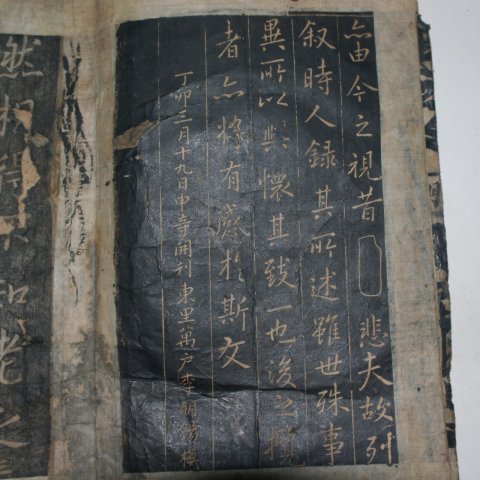 亦由今之視昔悲夫故列
叙時人錄其所述雖世殊事
異所以興懷其致一也後之攬
者亦將有感於斯文
丁卯三月十九日中寺開刊東里萬戶李明
知老之